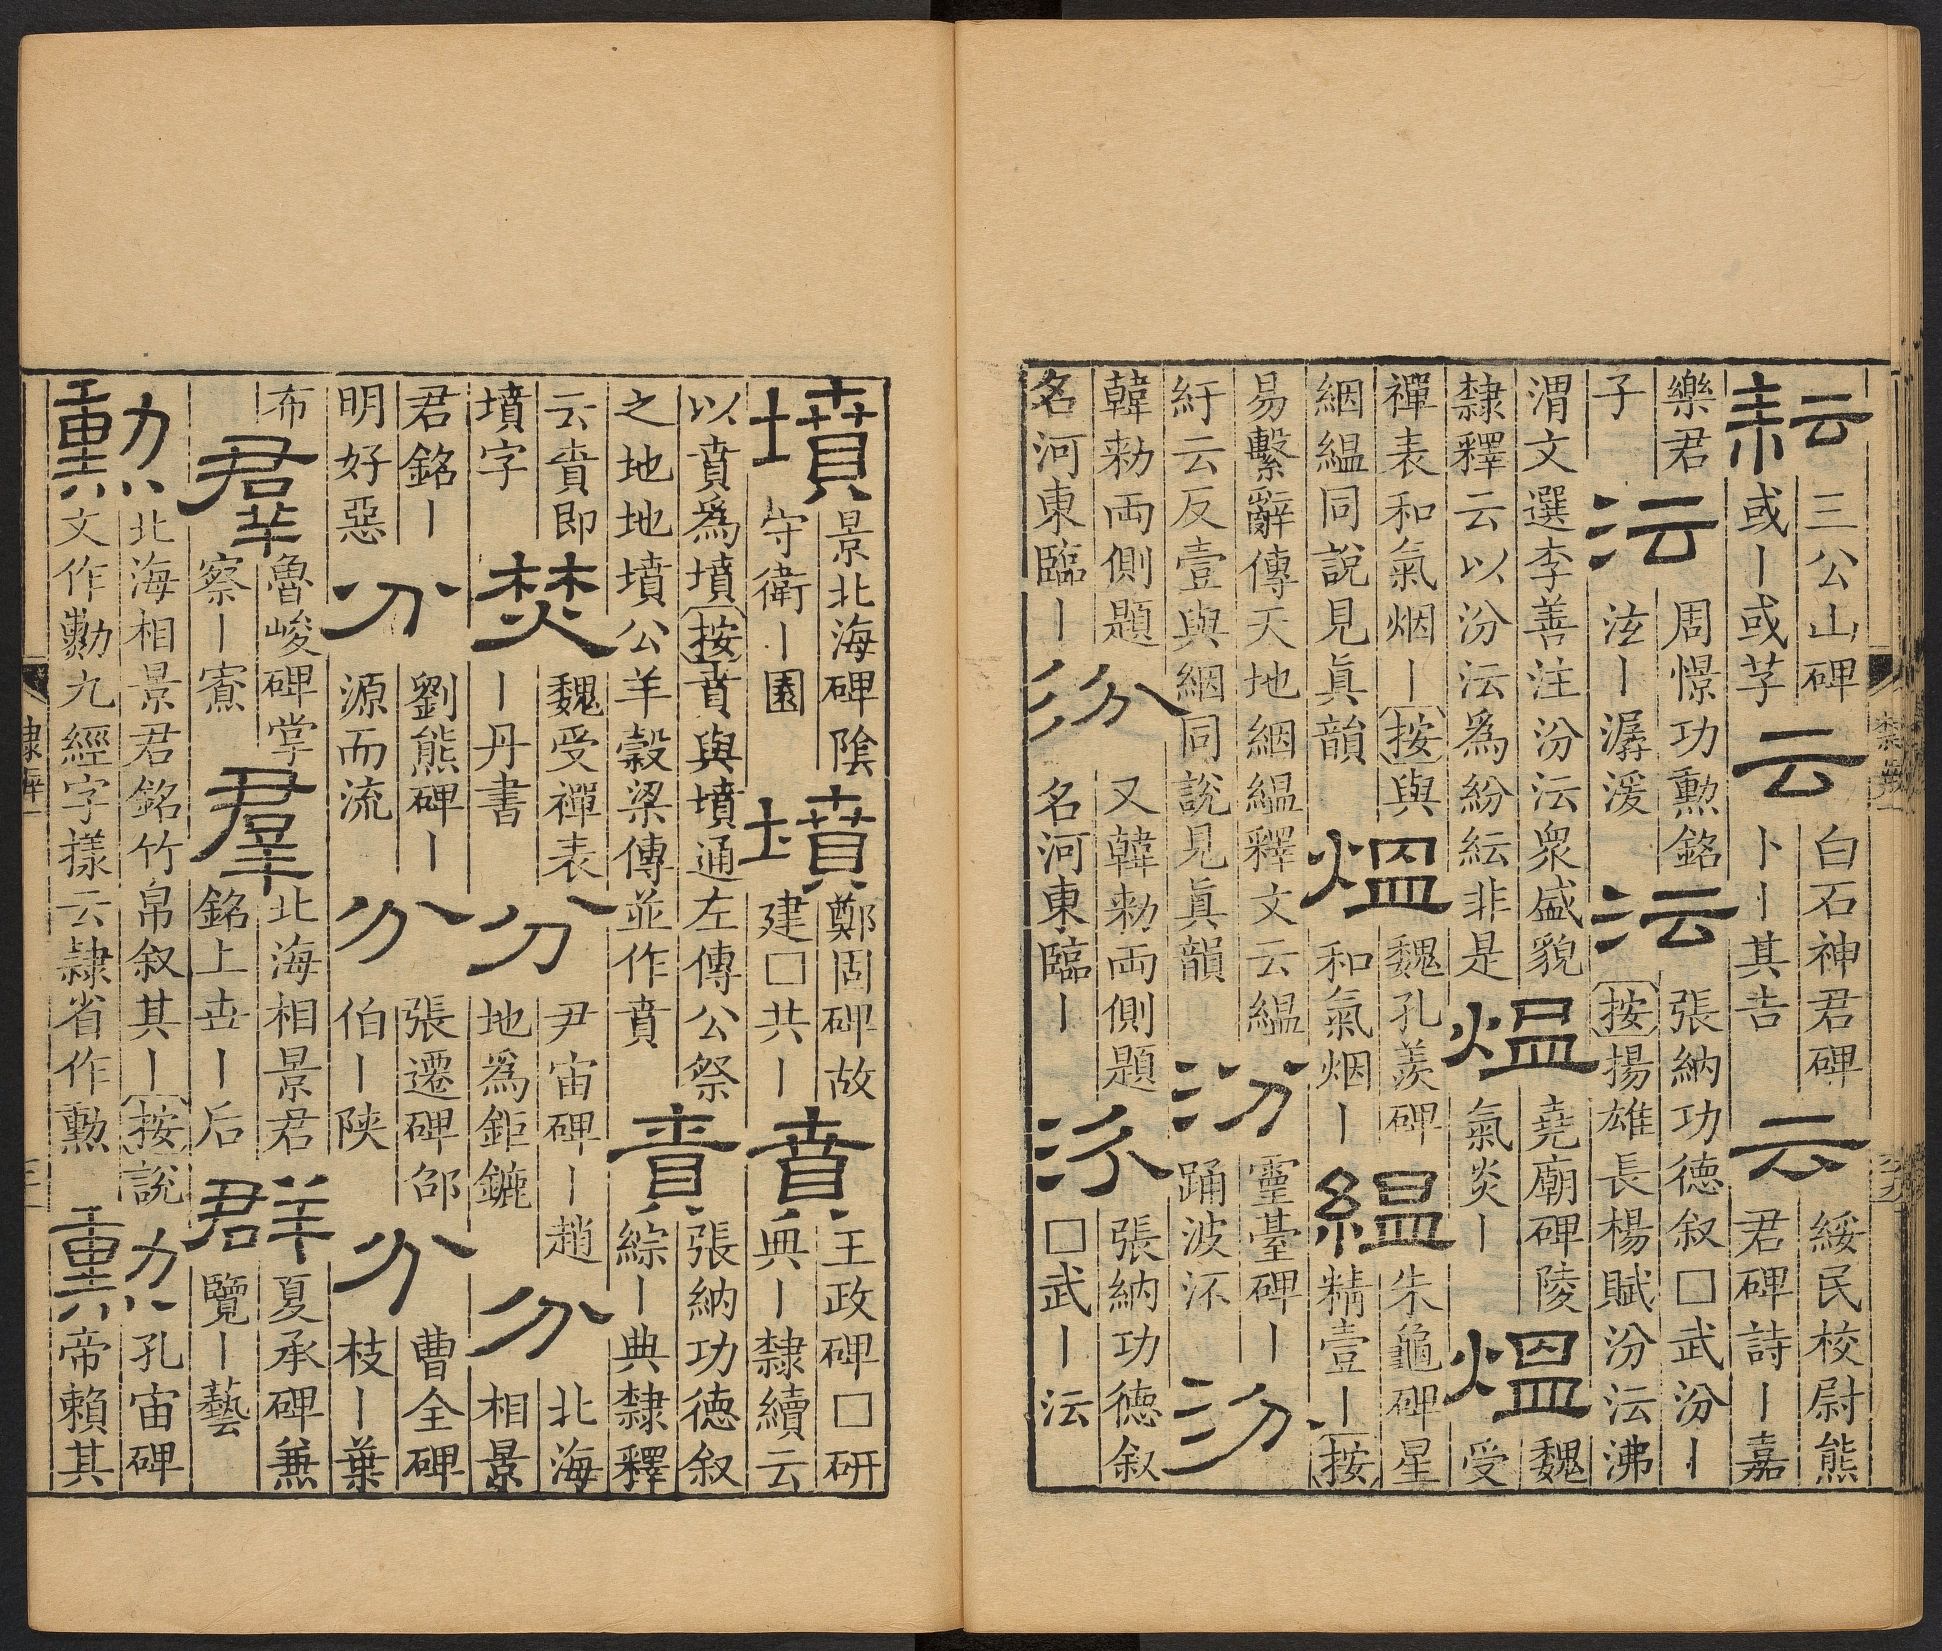 耘三公山碑或丨或芋云白石神君碑卜丨其告云綏民校尉熊君碑詩丨嘉
樂君子沄周憬功勲銘泫丨潺湲沄張納功徳叙□武汾丨按揚雄長楊賦汾沄沸
渭文選李善注汾沄衆盛貌隸釋云以汾沄爲紛紜非是熅堯廟碑陵氣炎丨熅魏受
禪表和氣烟丨按與絪緼同說見眞韻熅魏孔羨碑和氣烟丨緼朱龜碑星精壹丨按
易繫辭傳天地絪緼釋文云緼紆云反壹與絪同說見眞韻汾靈臺碑丨踊波汾
韓勑兩側題名河東臨丨汾又韓勑兩側題名河東臨丨汾張納功徳叙□武丨沄
隸辨一
墳景北海碑陰守衛丨園墳鄭固碑故建□共丨賁王政碑□研典丨隸續云
以賁爲墳按賁與墳通左傳公祭之地地墳公羊榖梁傳並作賁賁張納功徳叙綜丨典隸釋
云賁即墳字焚魏受禪表丨丹書分尹宙碑丨趙地爲鉅鏕分北海相景
君銘丨明好惡分劉熊碑丨源而流分張遷碑邵伯丨陝分曹全碑枝丨葉
布羣魯峻碑掌察丨寮羣北海相景君銘上丗丨后群夏承碑兼覽丨藝
勲北海相景君銘竹帛叙其丨按說文作勳九經字㨾云隸省作勲勲孔宙碑帝頼其
隸辨一